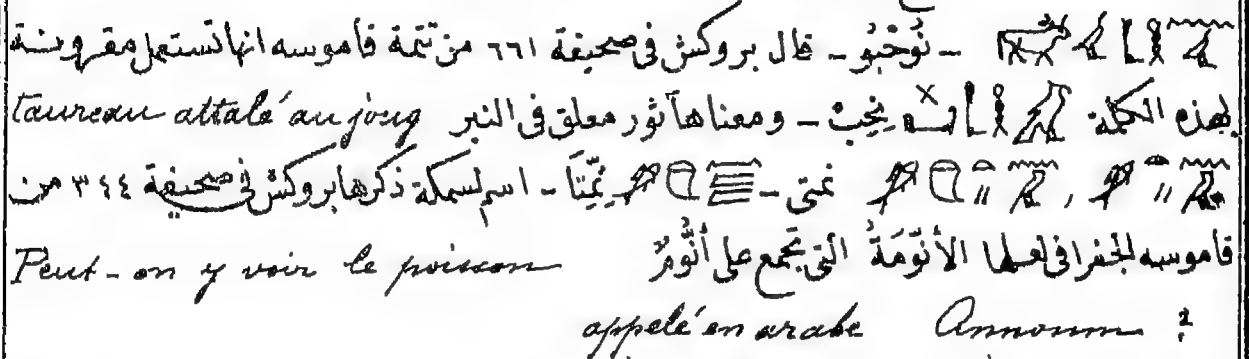 ـ نُوحْبُو ـ قال بروكش فى صحيفة ٦٦١ من تتمة قاموسه انها تستعمل مقرونة
بهذه الكلمة نِحِبْ ـ ومعناها ثور معلق فى النير taureau attalé au joug
نمتى ـ نِمِّتَا ـ اسم لسمكة ذكرها بروكش فى صحيفة ٣٤٤ من
قاموسه الجغرافى لعلها الأَنُّومَةُ التى تجمع على أَنُّومٌ Peut-on y voir le poisson
appelé en arabe Annoum ?